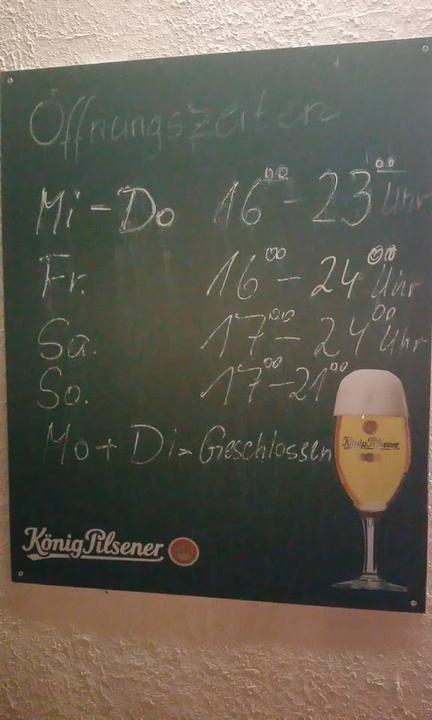 Öffnungszeiten
Mi - Do 16⁰⁰ - 23⁰⁰ Uhr
Fr. 16⁰⁰ - 24⁰⁰ Uhr
Sa. 17⁰⁰ - 24⁰⁰ Uhr
So. 17⁰⁰ - 21⁰⁰
Mo + Di = Geschlossen
König Pilsener
König Pilsener